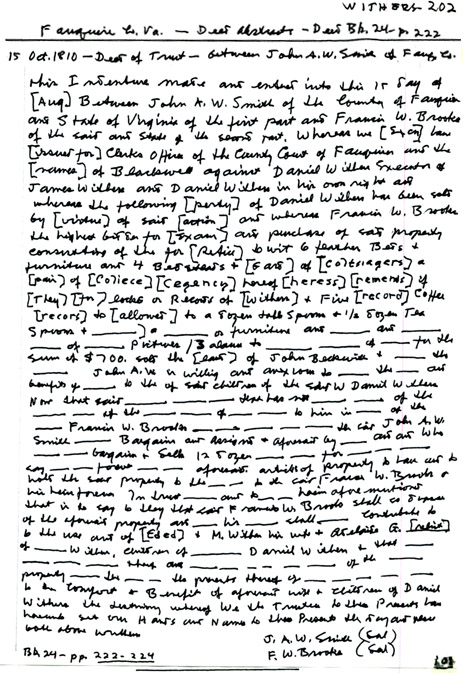 WITHERS 202
Fauquier Co. Va. — Deed Abstracts — Deed Bk. 24 - p. 222
15 Oct. 1810 — Deed of Trust — between John A. W. Smith of Fauq. Co.
This Indenture made and entered into this 15 day of
[Aug] Between John A. W. Smith of the County of Fauquier
and State of Virginia of the first part and Francis W. Brooke
of the said and State of the second part. Whereas an [Exon] has
[issued for] Clerks Office of the County Court of Fauquier and the
[names] of Blackwell against Daniel Withers Executor of
James Withers and Daniel Withers in his own right and
whereas the following [perty] of Daniel Withers has been sold
by [virtue] of said [action] and whereas Francis W. Brooke
the highest bidder for [Exam] and purchase of said property
consisting of the for [Retice] to wit 6 feather Beds &
furniture and 4 Bedsteads + [Ears] of [Coltsiagers] a
[pair] of [Coliece] [Cegency] [heress] [rements] if
[They] [In] or Records of [Withers] + Five [record] Coffee
[recors] to [allower] to a dozen table Spoons + 1/2 dozen Tea
Spoons + ___ ] a ___ or furniture and ___ and ___
___ of ___ Pictures / 3 ___ to ___ of ___ for the
sum of $700. sold the [last] of John Beckwith + ___ the
___ John A. W. is willing and anxious to ___ the ___ and
benefits of ___ to the of said children of the said W Daniel Withers
Now that said ___ ___ that has not ___ of the
___ of the ___ of ___ to him in ___ of the
___ Francis W. Brooke ___ ___ the said John A. W.
Smith ___ Bargain and assigns + aforesaid by ___ and and who
___ bargain + Sells 12 dozen ___ for ___
say ___ ___ aforesaid articles of property to have and to
hold the said property to the ___ to the said Francis W. Brooke &
his heirs forever In trust ___ and to ___ herein afore mentioned
that is to say to they that said Francis W. Brooke shall so
of the aforesaid property and ___ his ___ shall ___ contribute to
to the use and of [Eded] + M. Withers his wife + Adelaide G. [relict]
of ___ Withers, children of ___ Daniel Withers + that ___
___ they are ___ of the ___
property ___ the ___ the presents thereof of ___
to the Comfort + Benefit of aforesaid wife + children of Daniel
Withers the whereof We the Trustees to these Presents have
hereunto set our Hands and Names to these Presents the day and year
both above written
J. A. W. Smith (Seal)
F. W. Brooke (Seal)
Bk 24 - pp. 222-224